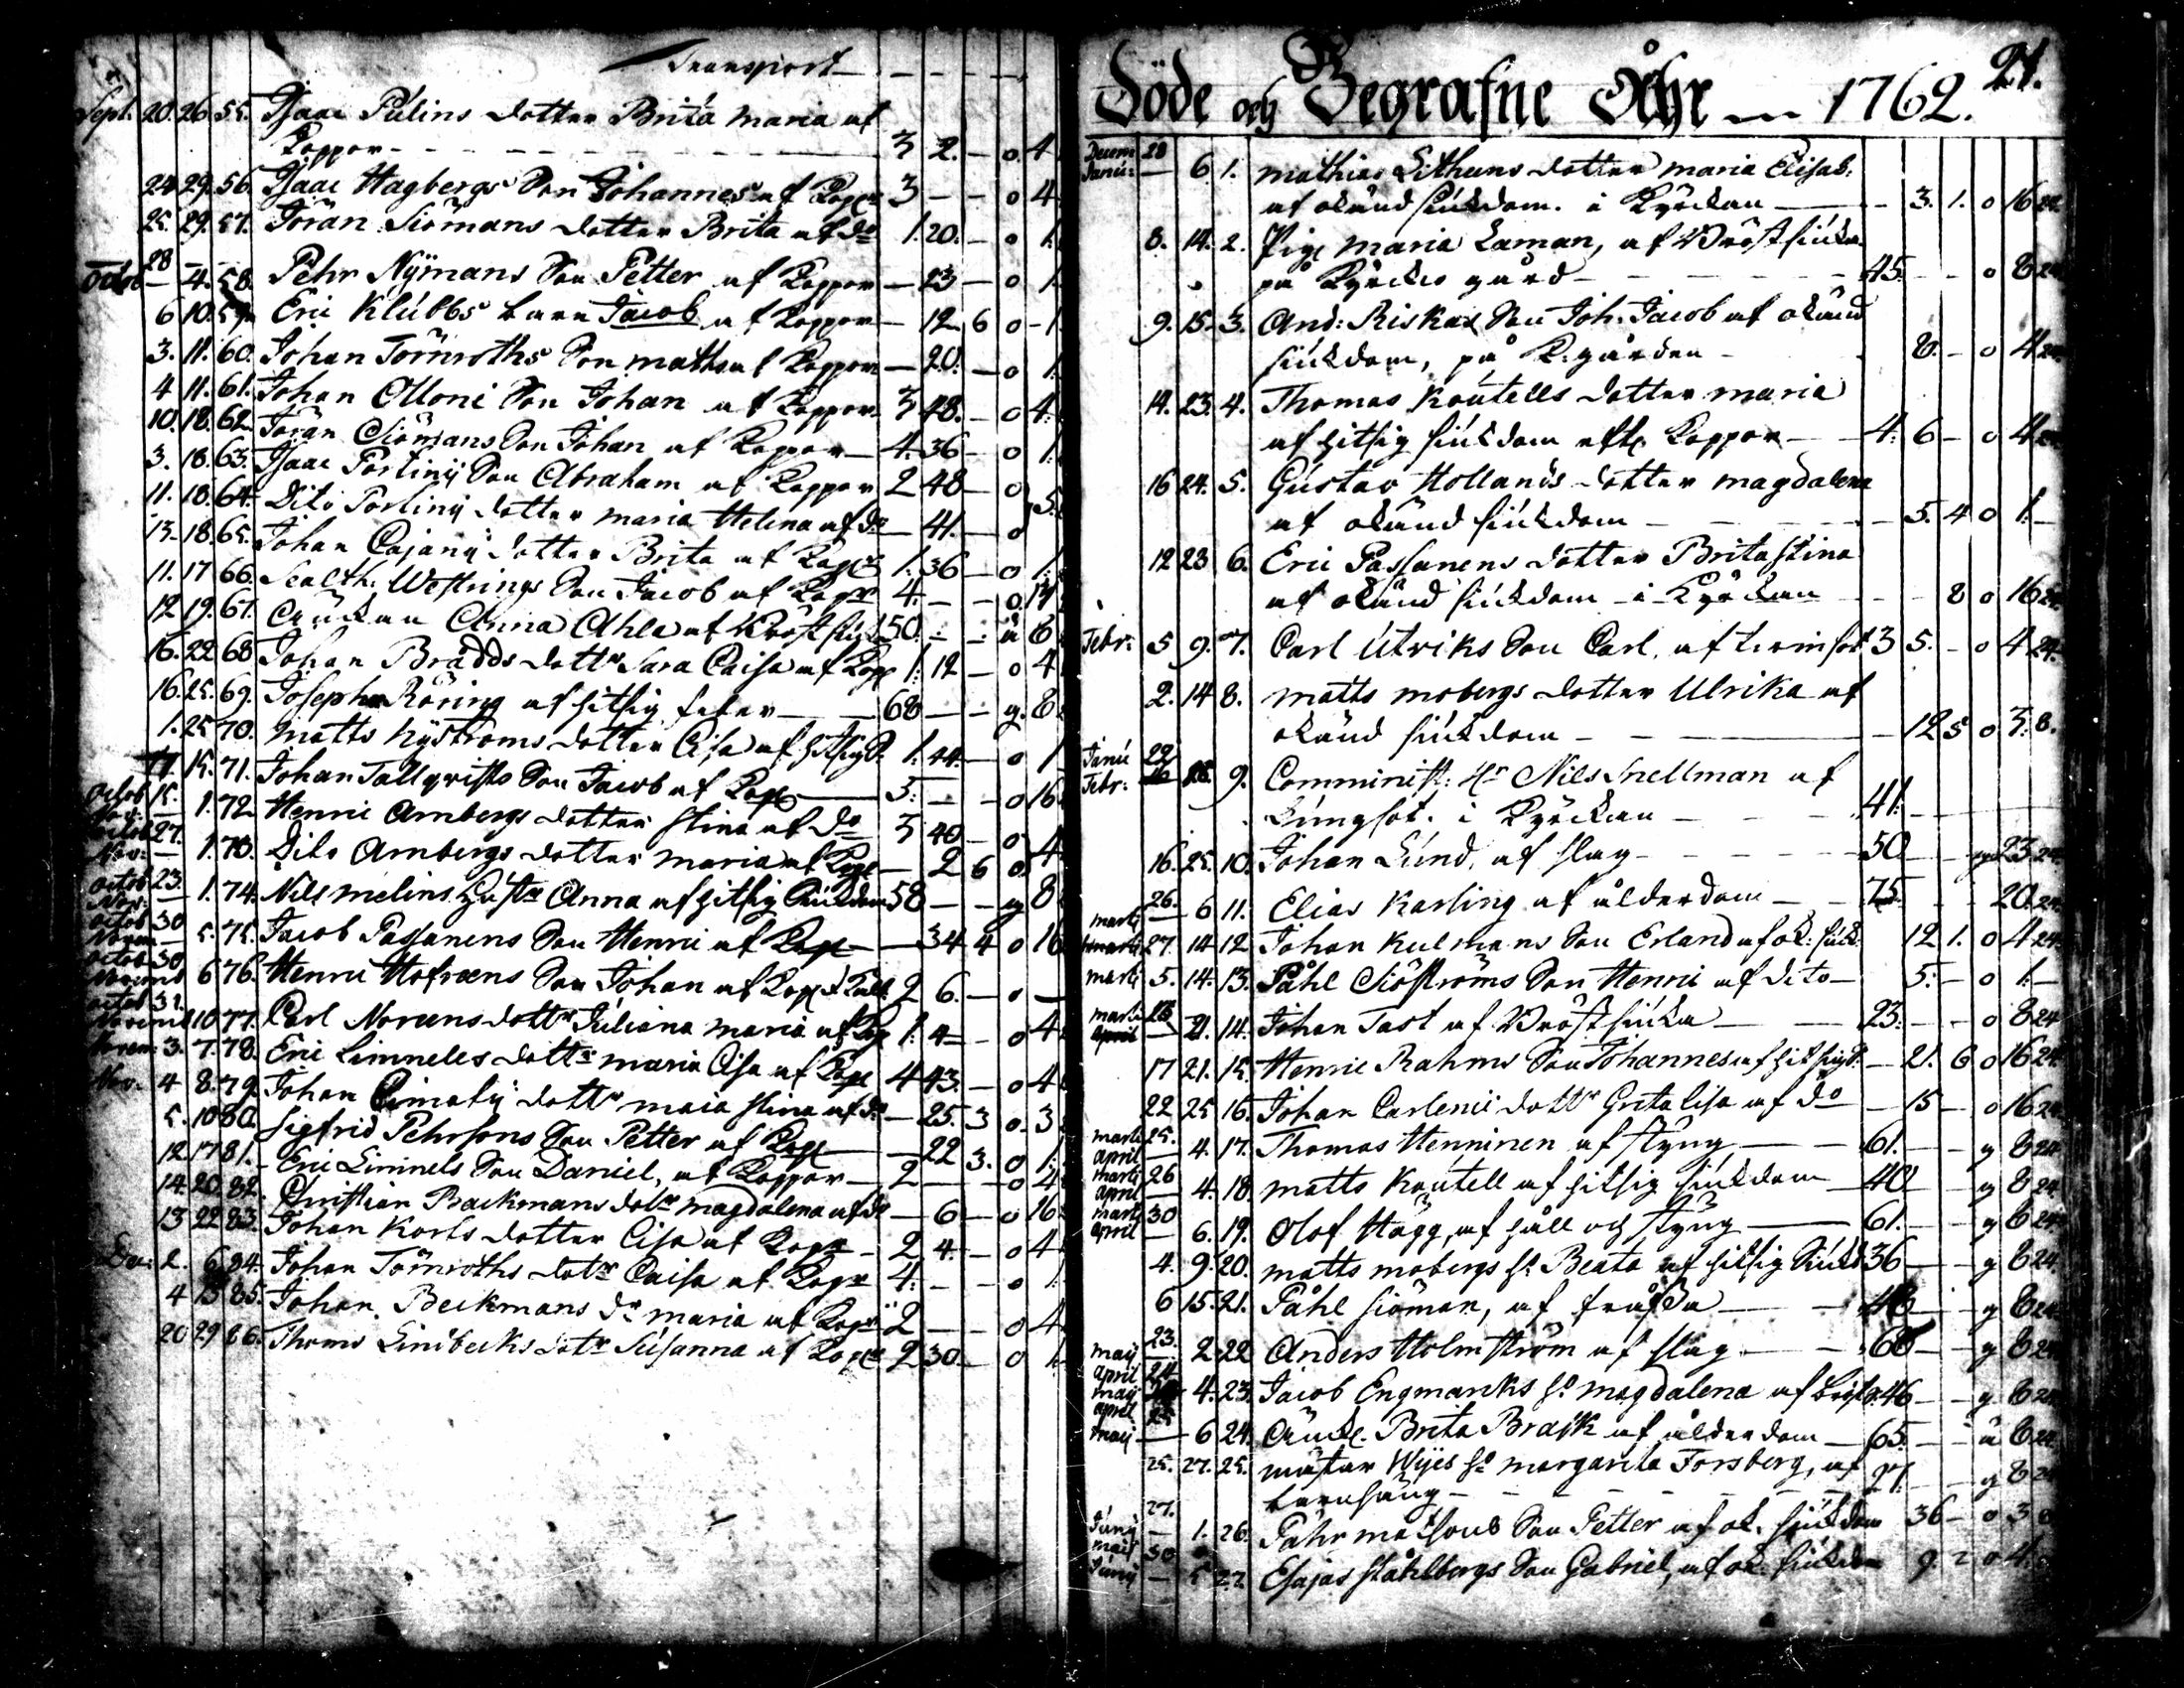 Transport
Sept. 20. 26 55. Isaac Pulins dotter Brita Maria af
Koppor 3 2. o. 4
24 29. 56. Isaac Hagbergs Son Johannes af Kopp 3 o 4
25. 29. 57. Jöran Siömans dotter Brita af do 1. 20. o 1.
28
Octob. 4. 58. Pehr Nÿmans Son Petter af Koppor 23 o 1.
6 10. 59. Eric Klubbs barn Jacob af Koppor 12 6 o 1
3. 11. 60. Johan Törnroths Son Matts af Koppor 20. o 1.
4 11. 61. Johan Olloni Son Johan af Koppor 3 48. o 4.
10. 18. 62. Jöran Siömans Son Johan af Koppor 4. 36 o 1.
3. 18. 63. Isaac Portinÿ Son Abraham af Koppor 2 48 o
11. 18. 64. Dito Portinÿ dotter Maria Helena af do 41. o 5.
13. 18. 65. Johan Cajanÿ dotter Brita af Kopp 1. 36 o 1.
11. 17 66. Westrings Son Jacob af Kopp 4. o
12 19. 67. Änckan Anna Ahla af bröstsiuk 50. ä 8
16. 22 68 Johan Brådds dottr Sara Caisa af Kopp 1. 12 o 4
16. 25. 69. Joseph Röring af hitsig feber 68 g. 8
1. 25 70. Matts Nÿströms dotter Lisa af hitsig 1. 44 o 1
15. 71. Johan Tallqvists Son Jacob af Kopp 3. o 16
Octob 15.
Nov: 1. 72. Henric Arnbergs dotter Stina af do 3 40 o
Octob 27.
Nov: 1. 73. Dito Arnbergs dotter Maria af Kopp 2 6 o 4
Octob 23.
Nov: 1. 74. Nils Melins Hustr Anna af hitsig Siukdom 58 g 8
Octob 30
Novem 5. 75. Jacob Passanens Son Henric af Kopp 34 4 o 16
Octob 30
Novemb 6 76. Henric Hofreens Son Johan af Kopp 2 6. o
Octob 31.
Novemb 10 77. Carl Noreens dottr Juliana Maria af Kop 1. 4 o 4
Novem 3. 7. 78. Eric Limneles dottr Maria Lisa af Kopp 4 43. o 4
Nov. 4 8. 79. Johan dottr Maja Stina af do 25. 3 o. 3
5. 10 80. Sigfrid Pehrsons Son Petter af Kopp 22 3. o 1.
12 17 81. Eric Limnels Son Daniel, af Koppor 2 o 4
14. 20. 82. Christian Backmans dotr Magdalena af do 6 o 16
13 22 83. Johan Korts dotter Lisa af Kopp 2 4 o 4
Dec: 2. 6. 84. Johan Törnroths dotr Caisa af Kopp 4. o 1.
4 13 85. Johan Beckmans dr Maria af Kopp 2 o 4
20 29 86. Thoms Lindbecks dotr Susanna af Kopp 2 30. o 1.
21.
Döde och Begrafne Åhr 1762.
Decem 28
Janu: 6. 1. Mathias Lithens dotter Maria Elisab:
af okänd siukdom. i Kyrckan 3. 1. o 16 24.
8. 14. 2. Pig. Maria Laman, af Bröstsiuka
på Kyrckio gård 45. o 8 24.
9. 15. 3. And: Riskas Son Joh. Jacob af okänd
siukdom, på K. gården 8. o 4 24.
14. 23. 4. Thomas Koutells dotter Maria
af hitsig siukdom efter Koppor 4. 6 o 4 24.
16 24. 5. Gustav Hollands dotter Magdalena
af okänd siukdom 5. 4 o 1.
12 23 6. Eric Passanens dotter Brita Stina
af okänd siukdom i Kyrckan 8 o 16 24.
Febr: 5 9. 7. Carl Utriks Son Carl, af 3 5. o 4 24.
2. 14 8. Matts Mobergs dotter Ulrika af
okänd siukdom 12 5 o 3. 8.
Janu 22
Febr: 9. Comminist: Hr Nils Snellman af
Lungsot. i Kyrckan 41.
16. 25. 10. Johan Lund, af slag 50 23 24.
26.
Marti 6 11. Elias Karling af ålderdom 75. 20. 24.
27. 14 12 Johan Kulmans Son Erland af ok: siuk. 12 1. o 4 24.
Marti 5. 14. 13. Påhl Siöströms Son Henric af dito 5. o 1.
Marti
April 2. 14. Johan Tast af Bröstsiuka 23. o 8 24
17 21. 15. Henric Rahms Son Johannes af hitsigs. 21. 6 o 16 24.
22 25 16. Johan Carlenii dottr Greta Lisa af do 15 o 16 24.
Marti 25.
April 4. 17. Thomas Henninen af stÿng 61. g 8 24
Marti 26
April 4. 18. Matts Koutell af hitsig siukdom 40 g 8 24
Marti 30
April 6. 19. Olof Hägg, af håll och stÿng 61. g 8 24
4. 9. 20. Matts Mobergs h: Beata af hitsig siukd 36 g 8 24.
6 15. 21. Påhl Siöman, af g 8 24
23.
Maij 2 22 Anders Holmström af slag 68 g 8 24
April 24
Maij 4. 23. Jacob Engmanks h: Magdalena af 46 g 8 24
April 25
Maij 6 24. Änck. Brita Brask af ålderdom 65. ä 8 24
25. 27. 25. Mästar Wijes h: Margareta Forsberg, af
barnsäng 27. g 8 24
27.
Junij 1. 26. Påhr Matsons Son Petter af ok. siukdom 36 o 3
Maij 30
Junij 5 27. Esajas Ståhlbergs Son Gabriel, af ok. siukdom 9. 2 o 4.